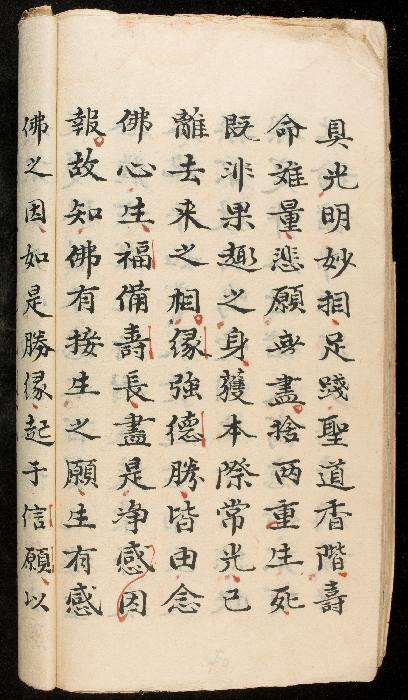 具光明妙相足踐聖道香階壽
命難量悲願無盡捨兩重生死
既非果趣之身獲本際常光已
離去來之相緣強德勝皆由念
佛心生福備壽長盡是净感因
報故知佛有接生之願生有感
佛之因如是勝緣起于信願以